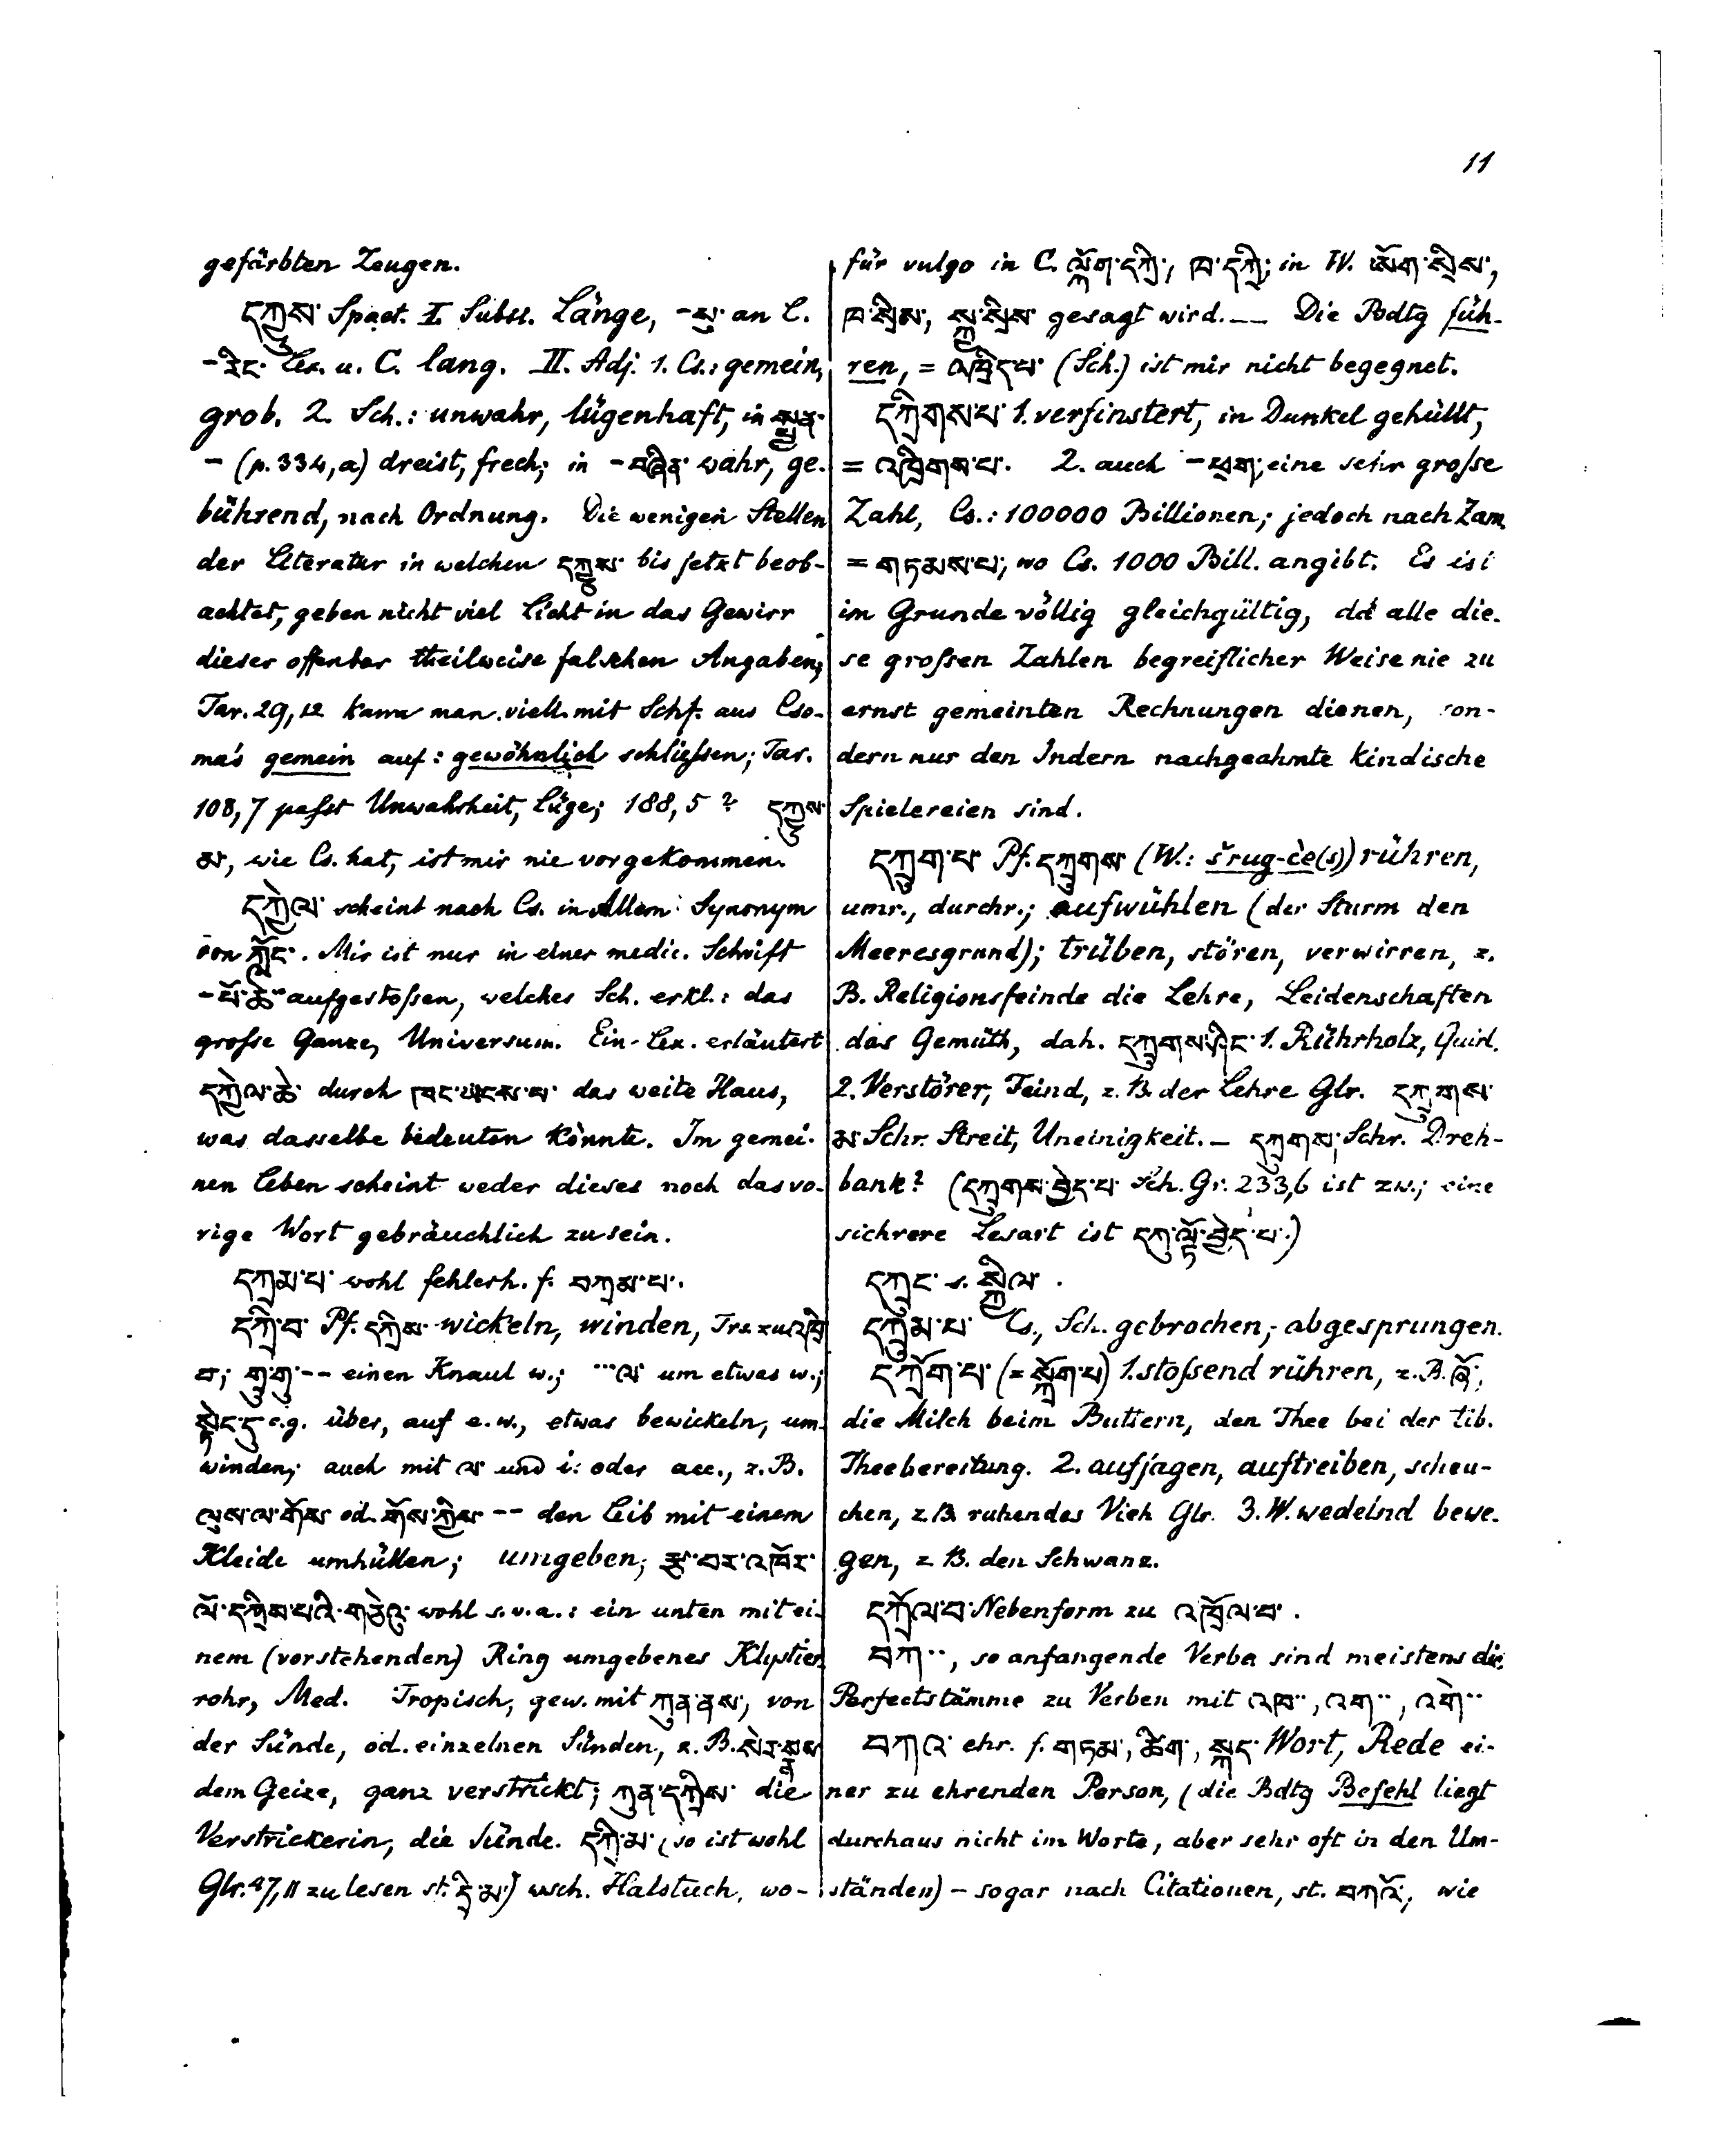 11
gefärbten Zeugen.
དཀྱུས་ Spaet. I. Subst. Länge, -སུ་ an L.
-རིང་ Lex. u. C. lang. II. Adj. 1. Cs.: gemein,
grob. 2. Sch.: unwahr, lügenhaft, in
- (p. 334, a) dreist, frech; in -བཞིན་ wahr, ge-
bührend, nach Ordnung. Die wenigen Stellen
der Literatur in welchen དཀྱུས་ bis jetzt beob-
achtet, geben nicht viel Licht in das Gewirr
dieser offenbar theilweise falschen Angaben;
Tar. 29, 12 kann man viell. mit Schf. aus Cso-
ma's gemein auf: gewöhnlich schließen; Tar.
108, 7 paßt Unwahrheit, Lüge; 188, 5 ? དཀྱུས་
མ་, wie Cs. hat, ist mir nie vorgekommen.
དཀྱེལ་ scheint nach Cs. in Allem Synonym
von ཀློང་. Mir ist nur in einer medic. Schrift
-པོ་ཆེ་ aufgestoßen, welches Sch. erkl.: das
große Ganze, Universum. Ein Lex. erläutert
དཀྱེལ་ཆེ་ durch ཁང་ཡངས་པ་ das weite Haus,
was dasselbe bedeuten könnte. Im gemei-
nen Leben scheint weder dieses noch das vo-
rige Wort gebräuchlich zu sein.
དཀྲམ་པ་ wohl fehlerh. f. བཀྲམ་པ་.
དཀྲི་བ་ Pf. དཀྲིས་ wickeln, winden, Trs. zu འཁྲི་
བ་; གྲུ་གུ་ -- einen Knaul w.; ...ལ་ um etwas w.;
སྟེང་དུ c.g. über, auf e. w., etwas bewickeln, um-
winden; auch mit ལ་ und i: oder acc., z. B.
ལུས་ལ་གོས་ od. གོས་ཀྱིས་ -- den Leib mit einem
Kleide umhüllen; umgeben; རྩ་བར་འཁོར་
ལོ་དཀྲིས་པའི་གཅེའུ་ wohl s. v. a.: ein unten mit ei-
nem (vorstehenden) Ring umgebenes Klystier-
rohr, Med. Tropisch, gew. mit ཀུན་ནས་, von
der Sünde, od. einzelnen Sünden, z. B. སེར་སྣས་
dem Geize, ganz verstrickt; ཀུན་དཀྲིས་ die
Verstrickerin, die Sünde. དཀྲི་མ་ (so ist wohl
Glr. 47, 11 zu lesen st. དྲི་མ་) wsch. Halstuch, wo-
für vulgo in C. ལྐོག་དཀྲི་, ཁ་དཀྲི་; in W. ཨོག་སྲིས་,
ཁ་སྲིས་, སྐུ་སྲིས་ gesagt wird. — Die Bdtg füh-
ren, = འཁྲིད་པ་ (Sch.) ist mir nicht begegnet.
དཀྲིགས་པ་ 1. verfinstert, in Dunkel gehüllt,
= འཁྲིགས་པ་. 2. auch -ཕྲག་, eine sehr große
Zahl, Cs.: 100000 Billionen; jedoch nach Zam.
= གཏམས་པ་, wo Cs. 1000 Bill. angibt. Es ist
im Grunde völlig gleichgültig, da alle die-
se großen Zahlen begreiflicher Weise nie zu
ernst gemeinten Rechnungen dienen, son-
dern nur den Indern nachgeahmte kindische
Spielereien sind.
དཀྲུག་པ་ Pf. དཀྲུགས་ (W.: šrug-čè(s)) rühren,
umr., durchr.; aufwühlen (der Sturm den
Meeresgrund); trüben, stören, verwirren, z.
B. Religionsfeinde die Lehre, Leidenschaften
das Gemüth, dah. དཀྲུགས་ཤིང་ 1. Rührholz, Quirl.
2. Verstörer, Feind, z. B. der Lehre Glr. དཀྲུགས་
མ་ Schr. Streit, Uneinigkeit. — དཀྲུགས་, Schr. Dreh-
bank? (དཀྲུགས་བྱེད་པ་ Sch. Gr. 233,6 ist zw.; eine
sichrere Lesart ist དཀུ་ལྟོ་བྱེད་པ་.)
དཀྲུང་ s. སྐྱིལ་.
དཀྲུམ་པ་ Cs., Sch. gebrochen; abgesprungen.
དཀྲོག་པ་ (= སྐྲོག་པ) 1. stoßend rühren, z. B. ཞོ་,
die Milch beim Buttern, den Thee bei der tib.
Theebereitung. 2. aufjagen, auftreiben, scheu-
chen, z. B. ruhendes Vieh Glr. 3. W. wedelnd bewe-
gen, z. B. den Schwanz.
དཀྲོལ་བ་ Nebenform zu འཁྲོལ་བ་.
བཀ.., so anfangende Verba sind meistens die
Perfectstämme zu Verben mit འཁ.., འག.., འགེ..
བཀའ་ ehr. f. གཏམ་, ཚིག་, སྐད་ Wort, Rede ei-
ner zu ehrenden Person, (die Bdtg Befehl liegt
durchaus nicht im Worte, aber sehr oft in den Um-
ständen) - sogar nach Citationen, st. བཀའོ་, wie